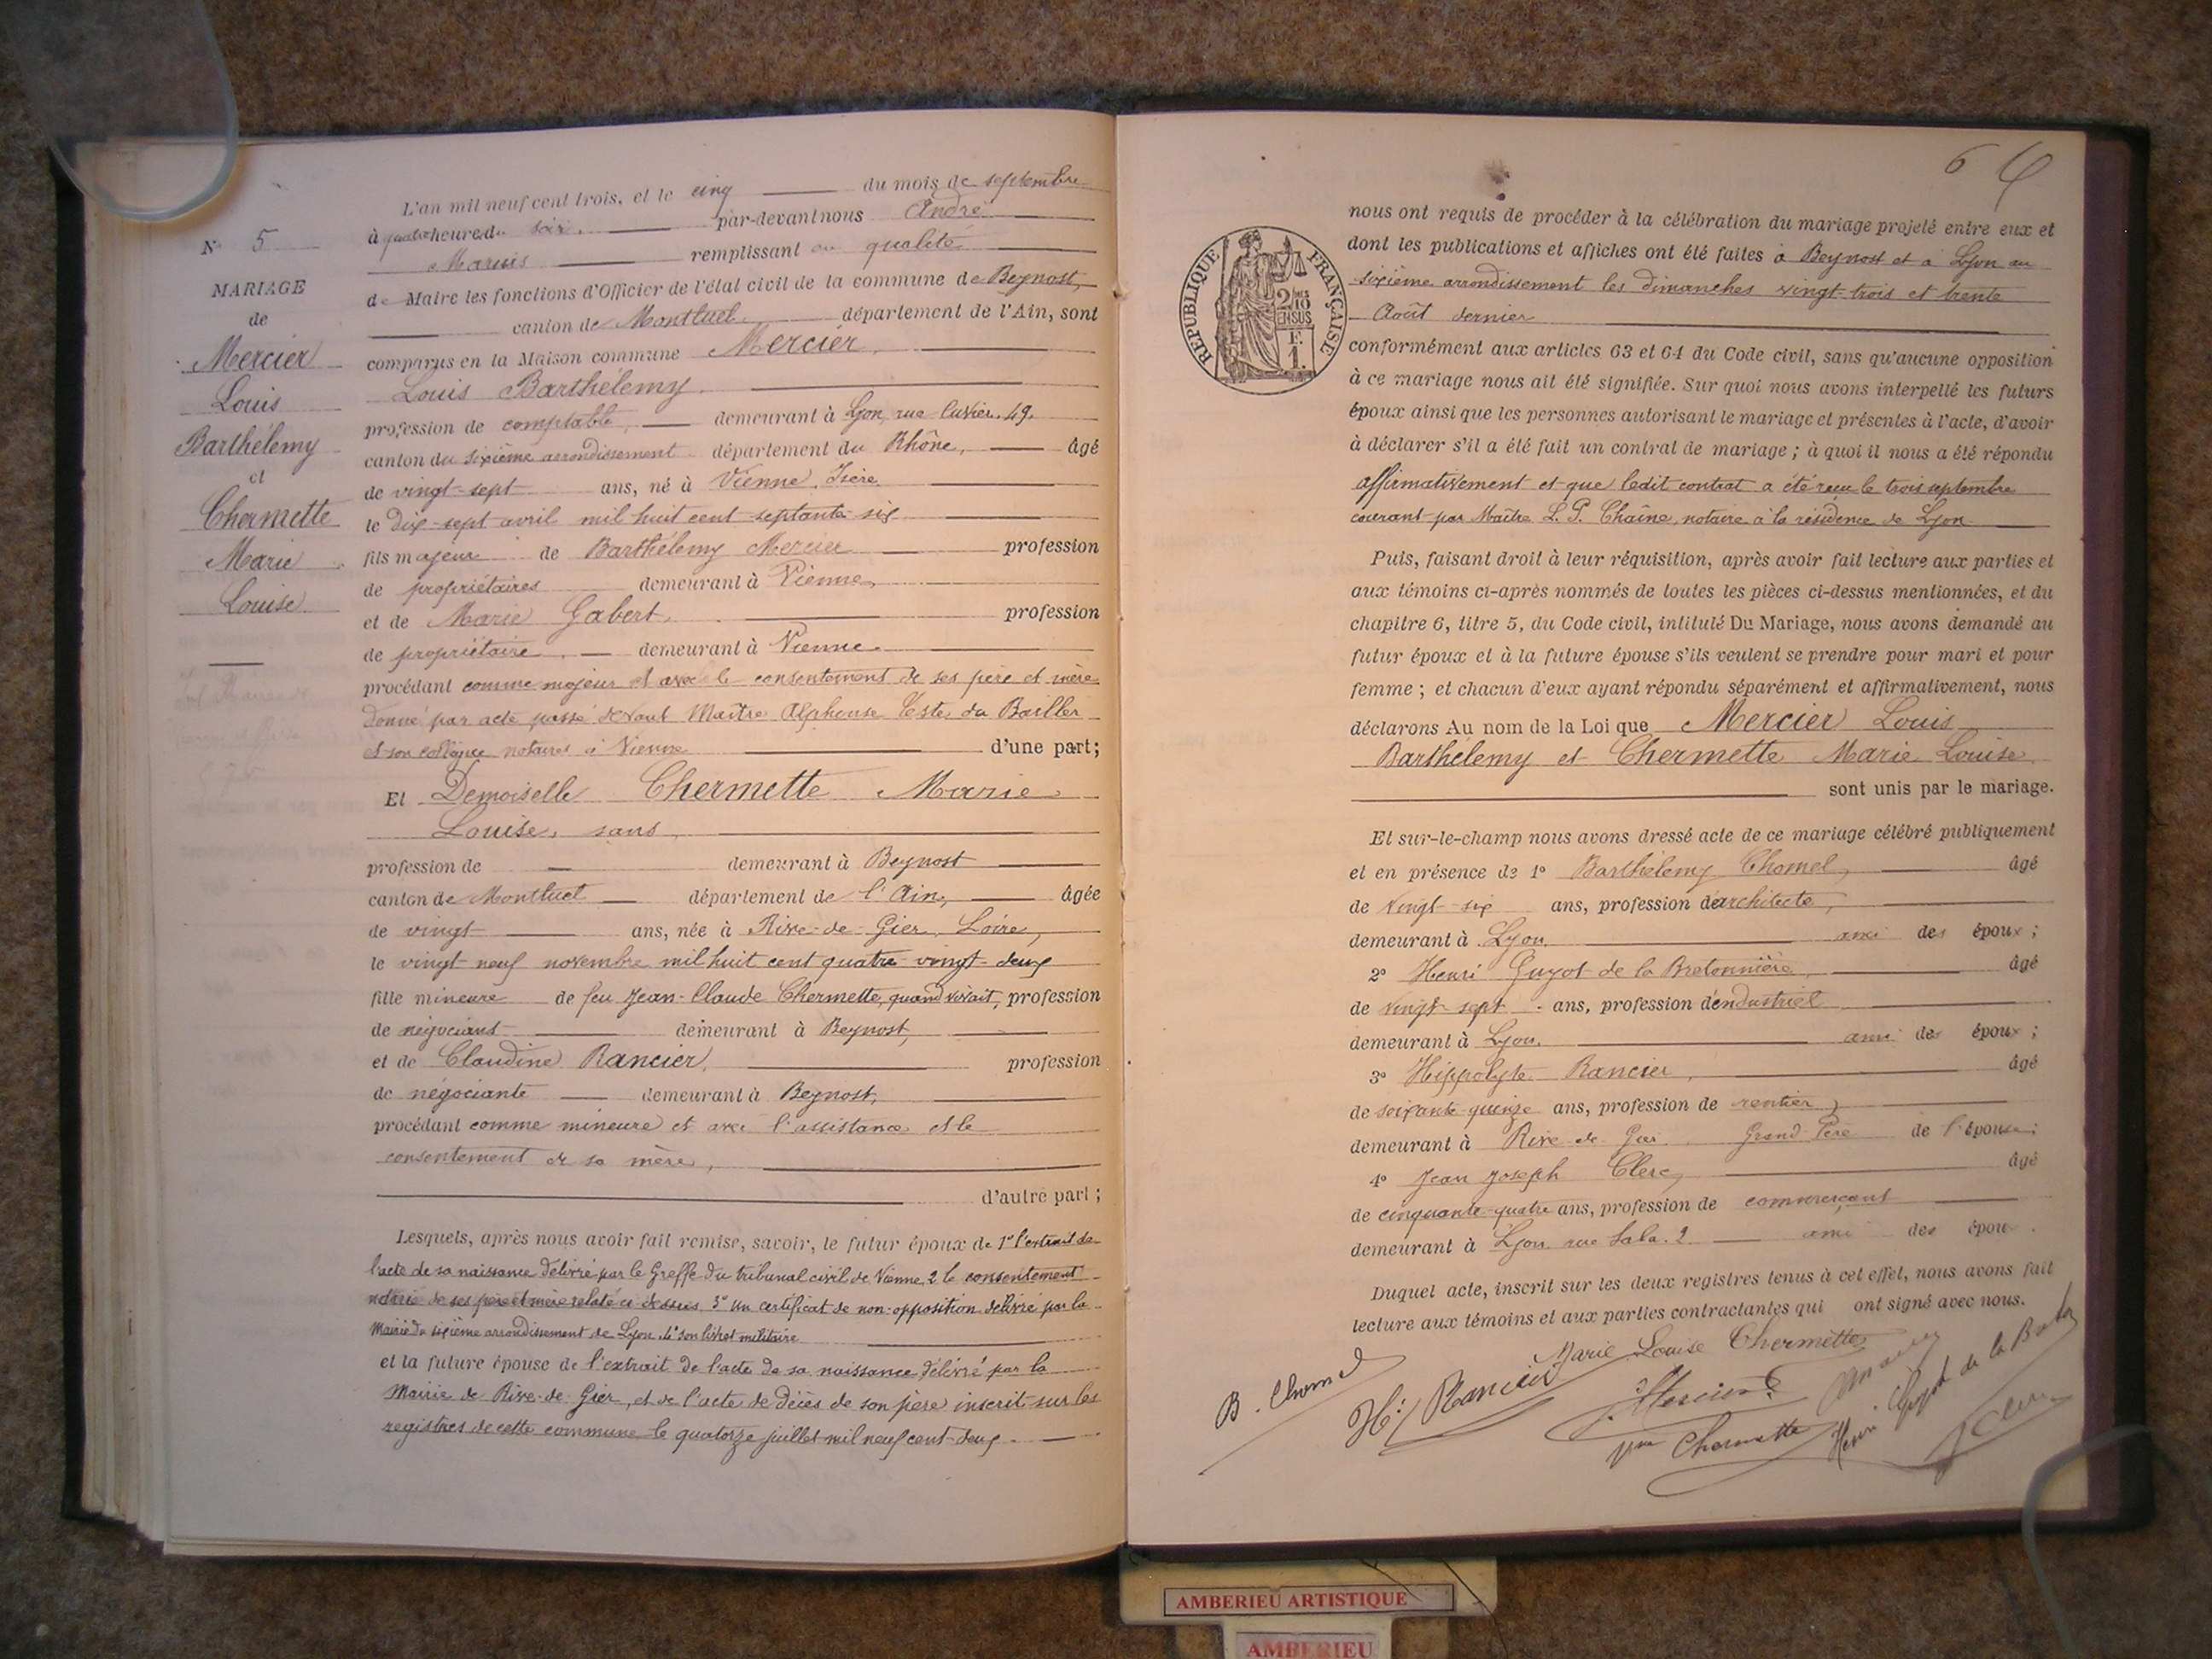 N° 5
MARIAGE
de
Mercier
Louis
Barthélemy
et
Chermette
Marie
Louise
L'an mil neuf cent trois, et le cinq du mois de septembre
à quatre heure du soir. par-devant nous André
Marius remplissant en qualité
de Maire les fonctions d'Officier de l'état civil de la commune de Beynost,
canton de Montluel département de l'Ain, sont
comparus en la Maison commune Mercier
Louis Barthélemy
profession de comptable, demeurant à Lyon, rue Cuvier. 49.
canton du sixième arrondissement département du Rhône, âgé
de vingt-sept ans, né à Vienne, Isère
le dix-sept avril mil huit cent septante six
fils majeur de Barthélemy Mercier profession
de propriétaires demeurant à Vienne,
et de Marie Gabert, profession
de propriétaire demeurant à Vienne
procédant comme majeur et avec le consentement de ses père et mère
donné par acte passé devant Maître Alphonse Teste du Bailler
et son collègue notaires à Vienne d'une part;
Et Demoiselle Chermette Marie
Louise, sans
profession de demeurant à Beynost
canton de Montluel département de l'Ain, âgée
de vingt ans, née à Rive-de-Gier, Loire,
le vingt neuf novembre mil huit cent quatre-vingt-deux
fille mineure de feu Jean-Claude Chermette, quand vivait, profession
de négociant demeurant à Beynost,
et de Claudine Rancier, profession
de négociante demeurant à Beynost,
procédant comme mineure et avec l'assistance et le
consentement de sa mère,
d'autre part;
Lesquels, après nous avoir fait remise, savoir, le futur époux de 1° l'extrait de
l'acte de sa naissance délivré par le Greffe du tribunal civil de Vienne, 2 le consentement
notarié de ses père et mère relaté ci-dessus 3° Un certificat de non-opposition délivré par la
Mairie du sixième arrondissement de Lyon. 4° son livret militaire
et la future épouse de l'extrait de l'acte de sa naissance, délivré par la
Mairie de Rive-de-Gier, et de l'acte de décès de son père inscrit sur les
registres de cette commune le quatorze juillet mil neuf cent-deux.
6
RÉPUBLIQUE FRANÇAISE
2/10
EN SUS
F.
1.
nous ont requis de procéder à la célébration du mariage projeté entre eux et
dont les publications et affiches ont été faites à Beynost et à Lyon au
sixième arrondissement les dimanches vingt-trois et trente
Août dernier
conformément aux articles 63 et 64 du Code civil, sans qu'aucune opposition
à ce mariage nous ait été signifiée. Sur quoi nous avons interpellé les futurs
époux ainsi que les personnes autorisant le mariage et présentes à l'acte, d'avoir
à déclarer s'il a été fait un contrat de mariage; à quoi il nous a été répondu
affirmativement et que ledit contrat a été reçu le trois septembre
courant par Maître L. P. Chaîne, notaire à la résidence de Lyon
Puis, faisant droit à leur réquisition, après avoir fait lecture aux parties et
aux témoins ci-après nommés de toutes les pièces ci-dessus mentionnées, et du
chapitre 6, titre 5, du Code civil, intitulé Du Mariage, nous avons demandé au
futur époux et à la future épouse s'ils veulent se prendre pour mari et pour
femme; et chacun d'eux ayant répondu séparément et affirmativement, nous
déclarons Au nom de la Loi que Mercier Louis
Barthélemy et Chermette Marie Louise
sont unis par le mariage.
Et sur-le-champ nous avons dressé acte de ce mariage célébré publiquement
et en présence de 1° Barthélemy Chomel, âgé
de vingt-six ans, profession d'architecte,
demeurant à Lyon ami des époux;
2° Henri Guyot de la Bretonnière, âgé
de vingt-sept ans, profession d'industriel
demeurant à Lyon. ami des époux;
3° Hippolyte Rancier, âgé
de soixante-quinze ans, profession de rentier,
demeurant à Rive de Gier Grand Père de l'épouse;
4° Jean Joseph Clerc, âgé
de cinquante-quatre ans, profession de commerçant
demeurant à Lyon rue Sala. 2 ami des époux.
Duquel acte, inscrit sur les deux registres tenus à cet effet, nous avons fait
lecture aux témoins et aux parties contractantes qui ont signé avec nous.
Marie Louise Chermette
B. Chomel
Hte Rancier
L. Mercier
Vve Chermette
Henri Guyot de la Bret
J Clerc
AMBERIEU ARTISTIQUE
AMBERIEU